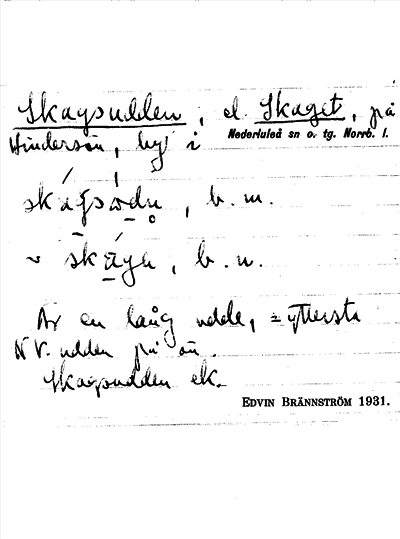 Skagsudden, el. Skaget, på
Nederluleå sn o. tg. Norrb. l.
Hindersön, by i
skágsωdn, b. m.
~ skāgh, b. n.
Är en lång udde, = yttersta
NV. udden på ön.
Skagsudden ek.
EDVIN BRÄNNSTRÖM 1931.